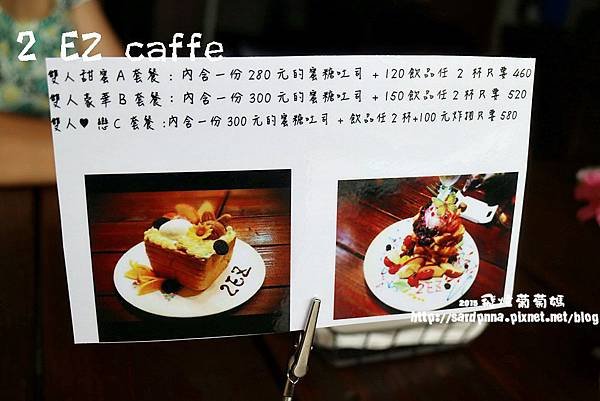 2 EZ caffe
雙人甜蜜A套餐：內含一份280元的蜜糖吐司 + 120飲品任2杯只要460
雙人豪華B套餐：內含一份300元的蜜糖吐司 + 150飲品任2杯只要520
雙人♥戀C套餐：內含一份300元的蜜糖吐司 + 飲品任2杯+100元炸物只要580
2EZ
2EZ
2015 飛妮葡萄媽
http://sardpnna.pixnet.net/blog